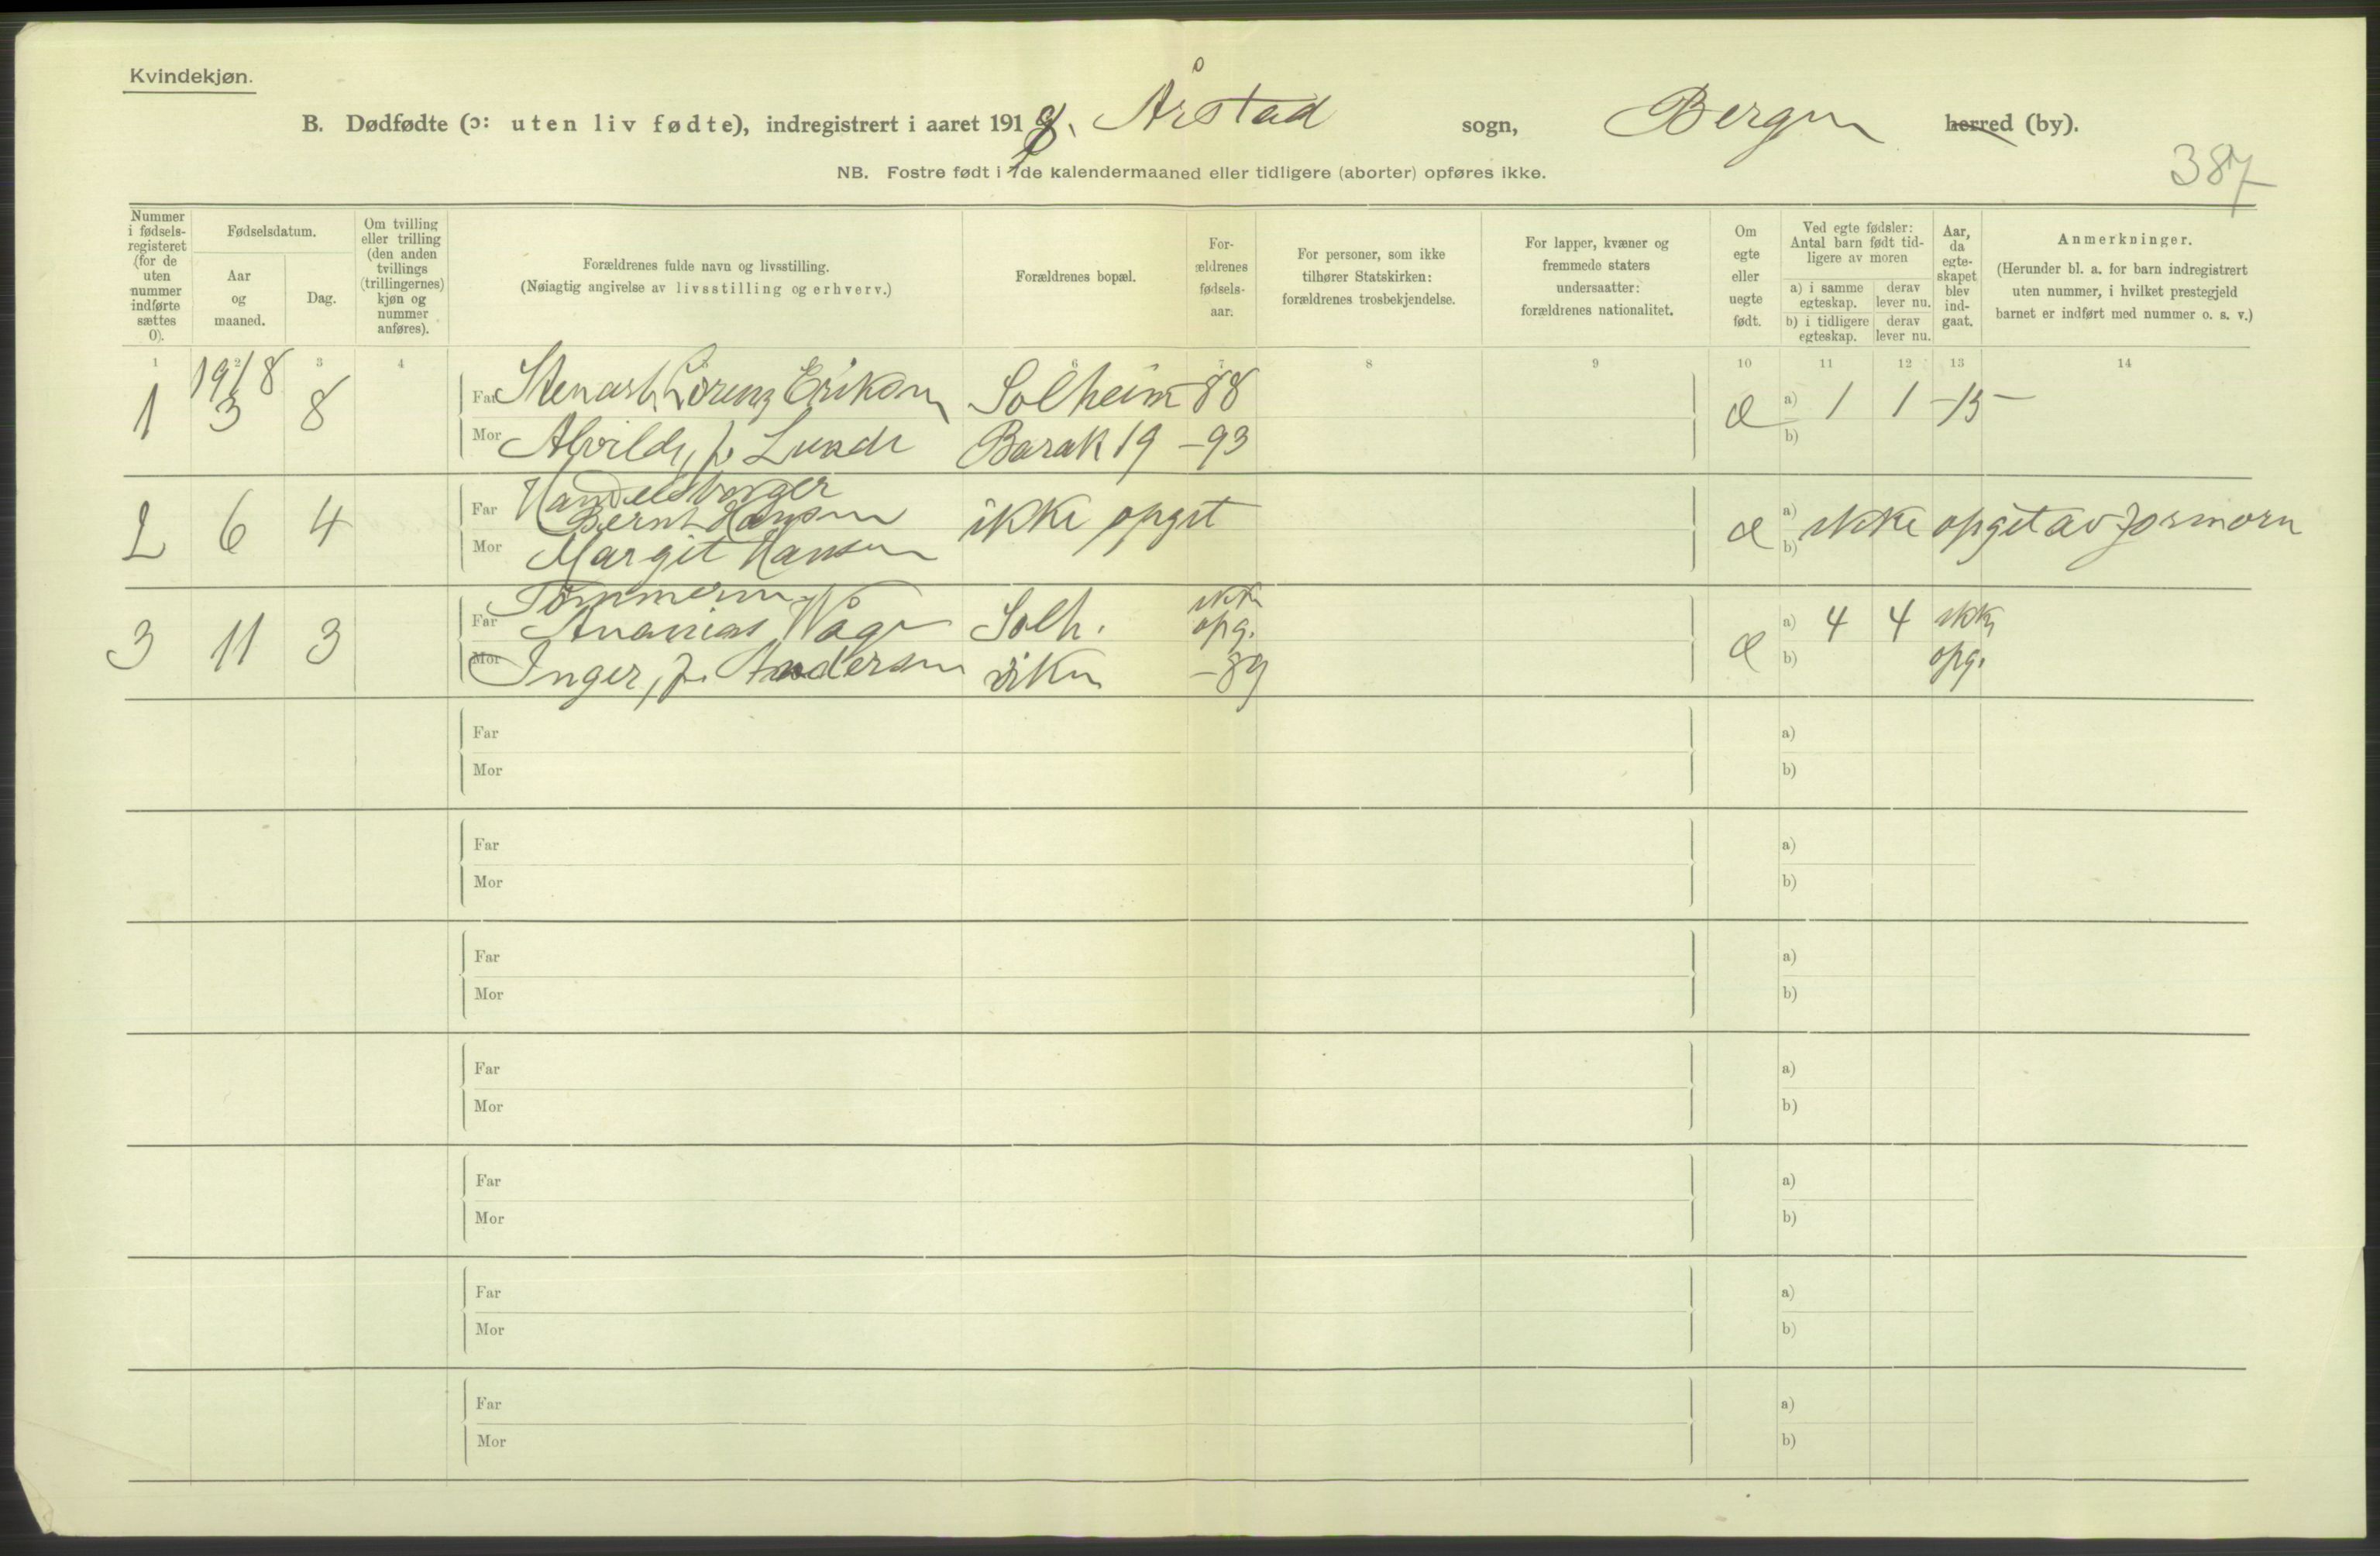 Kvindekjøn.
B. Dødfødte (ɔ: uten liv fødte), indregistrert i aaret 1918. Årstad sogn, Bergen herred (by).
NB. Fostre født i 7de kalendermaaned eller tidligere (aborter) opføres ikke.
387
Nummer i fødsels-registeret (for de uten nummer indførte sættes 0).
Fødselsdatum.
Aar og maaned.
Dag.
Om tvilling eller trilling (den anden tvillings (trillingernes) kjøn og nummer anføres).
Forældrenes fulde navn og livsstilling.
(Nøiagtig angivelse av livsstilling og erhverv.)
Forældrenes bopæl.
For-ældrenes fødsels-aar.
For personer, som ikke tilhører Statskirken: forældrenes trosbekjendelse.
For lapper, kvæner og fremmede staters undersaatter: forældrenes nationalitet.
Om egte eller uegte født.
Ved egte fødsler: Antal barn født tid-ligere av moren
a) i samme egteskap.
derav lever nu.
b) i tidligere egteskap.
derav lever nu.
Aar, da egte-skapet blev ind-gaat.
Anmerkninger.
(Herunder bl. a. for barn indregistrert uten nummer, i hvilket prestegjeld barnet er indført med nummer o. s. v.)
1 2 3 4 6 7 8 9 10 11 12 13 14
1918
1 3 8 Far Stenarb. Lorenz Eriksen Solheim -88 æ a) 1 1 -15-
Mor Alvilde, f. Lunde Barak 19 -93 b)
Handelsborger
2 6 4 Far Bernt Hansen ikke opgit æ a) ikke opgit av jormorn
Mor Margit Hansen b)
Tømmerm.
3 11 3 Far Ananias Våge Solh. ikke opg. æ a) 4 4 ikke opg.
Mor Inger, f. Andersen viken -89 b)
Far a)
Mor b)
Far a)
Mor b)
Far a)
Mor b)
Far a)
Mor b)
Far a)
Mor b)
Far a)
Mor b)
Far a)
Mor b)